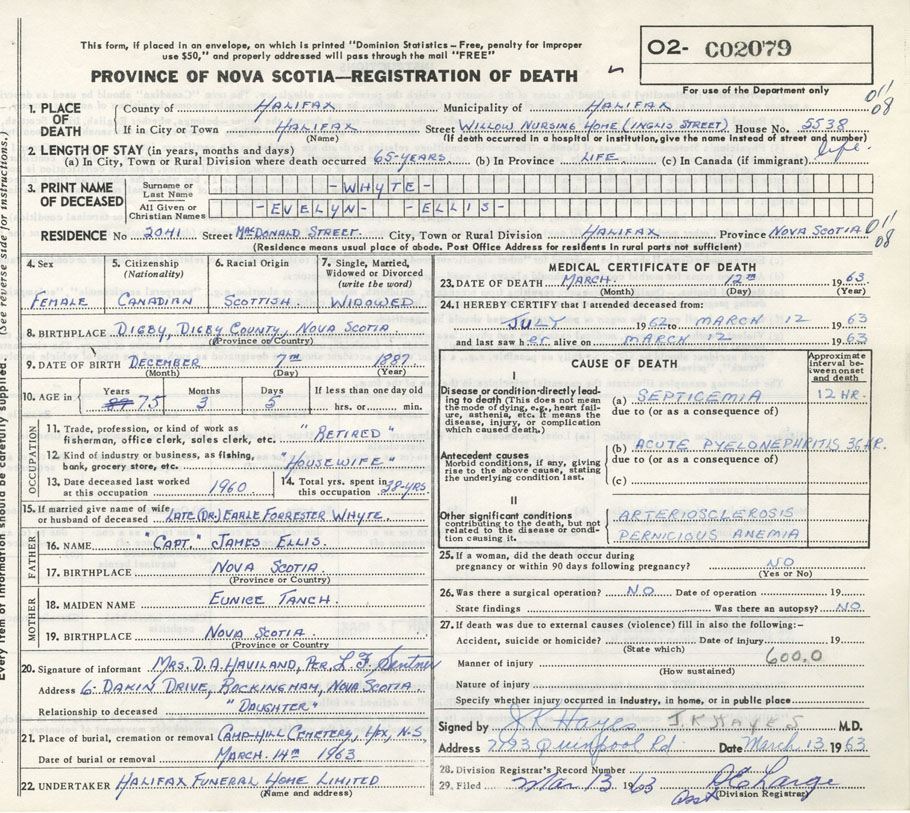 This form, if placed in an envelope, on which is printed "Dominion Statistics – Free, penalty for improper
use $50," and properly addressed will pass through the mail "FREE"
O2- C02079
PROVINCE OF NOVA SCOTIA—REGISTRATION OF DEATH
For use of the Department only
1. PLACE OF DEATH County of HALIFAX Municipality of HALIFAX
If in City or Town HALIFAX Street WILLOW NURSING HOME (INGLIS STREET) House No. 5538
(Name) (If death occurred in a hospital or institution, give the name instead of street and number)
011
08
2. LENGTH OF STAY (in years, months and days)
(a) In City, Town or Rural Division where death occurred 65-YEARS. (b) In Province LIFE. (c) In Canada (if immigrant) life.
3. PRINT NAME OF DECEASED
Surname or Last Name -WHYTE-
All Given or Christian Names -EVELYN- -ELLIS-
RESIDENCE No 2041 Street MACDONALD STREET. City, Town or Rural Division HALIFAX Province NOVA SCOTIA
011
08
(Residence means usual place of abode. Post Office Address for residents in rural parts not sufficient)
4. Sex FEMALE
5. Citizenship (Nationality) CANADIAN
6. Racial Origin SCOTTISH
7. Single, Married, Widowed or Divorced (write the word) WIDOWED
8. BIRTHPLACE DIGBY, DIGBY COUNTY, NOVA SCOTIA
(Province or Country)
9. DATE OF BIRTH DECEMBER 7TH 1887
(Month) (Day) (Year)
10. AGE in Years 75 Months 3 Days 5 If less than one day old hrs. or min.
OCCUPATION
11. Trade, profession, or kind of work as fisherman, office clerk, sales clerk, etc. "RETIRED"
12. Kind of industry or business, as fishing, bank, grocery store, etc. "HOUSEWIFE"
13. Date deceased last worked at this occupation 1960
14. Total yrs. spent in this occupation 38-YRS.
15. If married give name of wife or husband of deceased LATE (DR.) EARLE FORRESTER WHYTE.
FATHER
16. NAME "CAPT." JAMES ELLIS.
17. BIRTHPLACE NOVA SCOTIA
(Province or Country)
MOTHER
18. MAIDEN NAME EUNICE TANCH.
19. BIRTHPLACE NOVA SCOTIA
(Province or Country)
20. Signature of informant MRS. D.A. HAVILAND, PER. L.F.
Address 6- DAKIN DRIVE, ROCKINGHAM, NOVA SCOTIA.
Relationship to deceased "DAUGHTER"
21. Place of burial, cremation or removal CAMP-HILL CEMETERY, HFX, N.S.
Date of burial or removal MARCH. 14TH 1963
22. UNDERTAKER HALIFAX FUNERAL HOME LIMITED
(Name and address)
MEDICAL CERTIFICATE OF DEATH
23. DATE OF DEATH MARCH. 12TH 1963
(Month) (Day) (Year)
24. I HEREBY CERTIFY that I attended deceased from:
JULY 1962 to MARCH 12 1963
and last saw her alive on MARCH 12 1963
CAUSE OF DEATH
Approximate interval between onset and death
I
Disease or condition directly leading to death (This does not mean the mode of dying, e.g., heart failure, asthenia, etc. It means the disease, injury, or complication which caused death.)
(a) SEPTICEMIA 12 HR.
due to (or as a consequence of)
Antecedent causes
Morbid conditions, if any, giving rise to the above cause, stating the underlying condition last.
(b) ACUTE PYELONEPHRITIS 36 HR.
due to (or as a consequence of)
(c)
II
Other significant conditions contributing to the death, but not related to the disease or condition causing it.
ARTERIOSCLEROSIS
PERNICIOUS ANEMIA
25. If a woman, did the death occur during pregnancy or within 90 days following pregnancy? NO
(Yes or No)
26. Was there a surgical operation? NO Date of operation 19
State findings Was there an autopsy? NO
27. If death was due to external causes (violence) fill in also the following:–
Accident, suicide or homicide? Date of injury 19
(State which)
Manner of injury 600.0
(How sustained)
Nature of injury
Specify whether injury occurred in industry, in home, or in public place
Signed by J K Hayes J.K HAYES M.D.
Address 7793 Quinpool Rd Date March 13 1963
28. Division Registrar's Record Number
29. Filed Mar 13 1963
Asst (Division Registrar)
Every item of information should be carefully supplied. (See reverse side for instructions.)